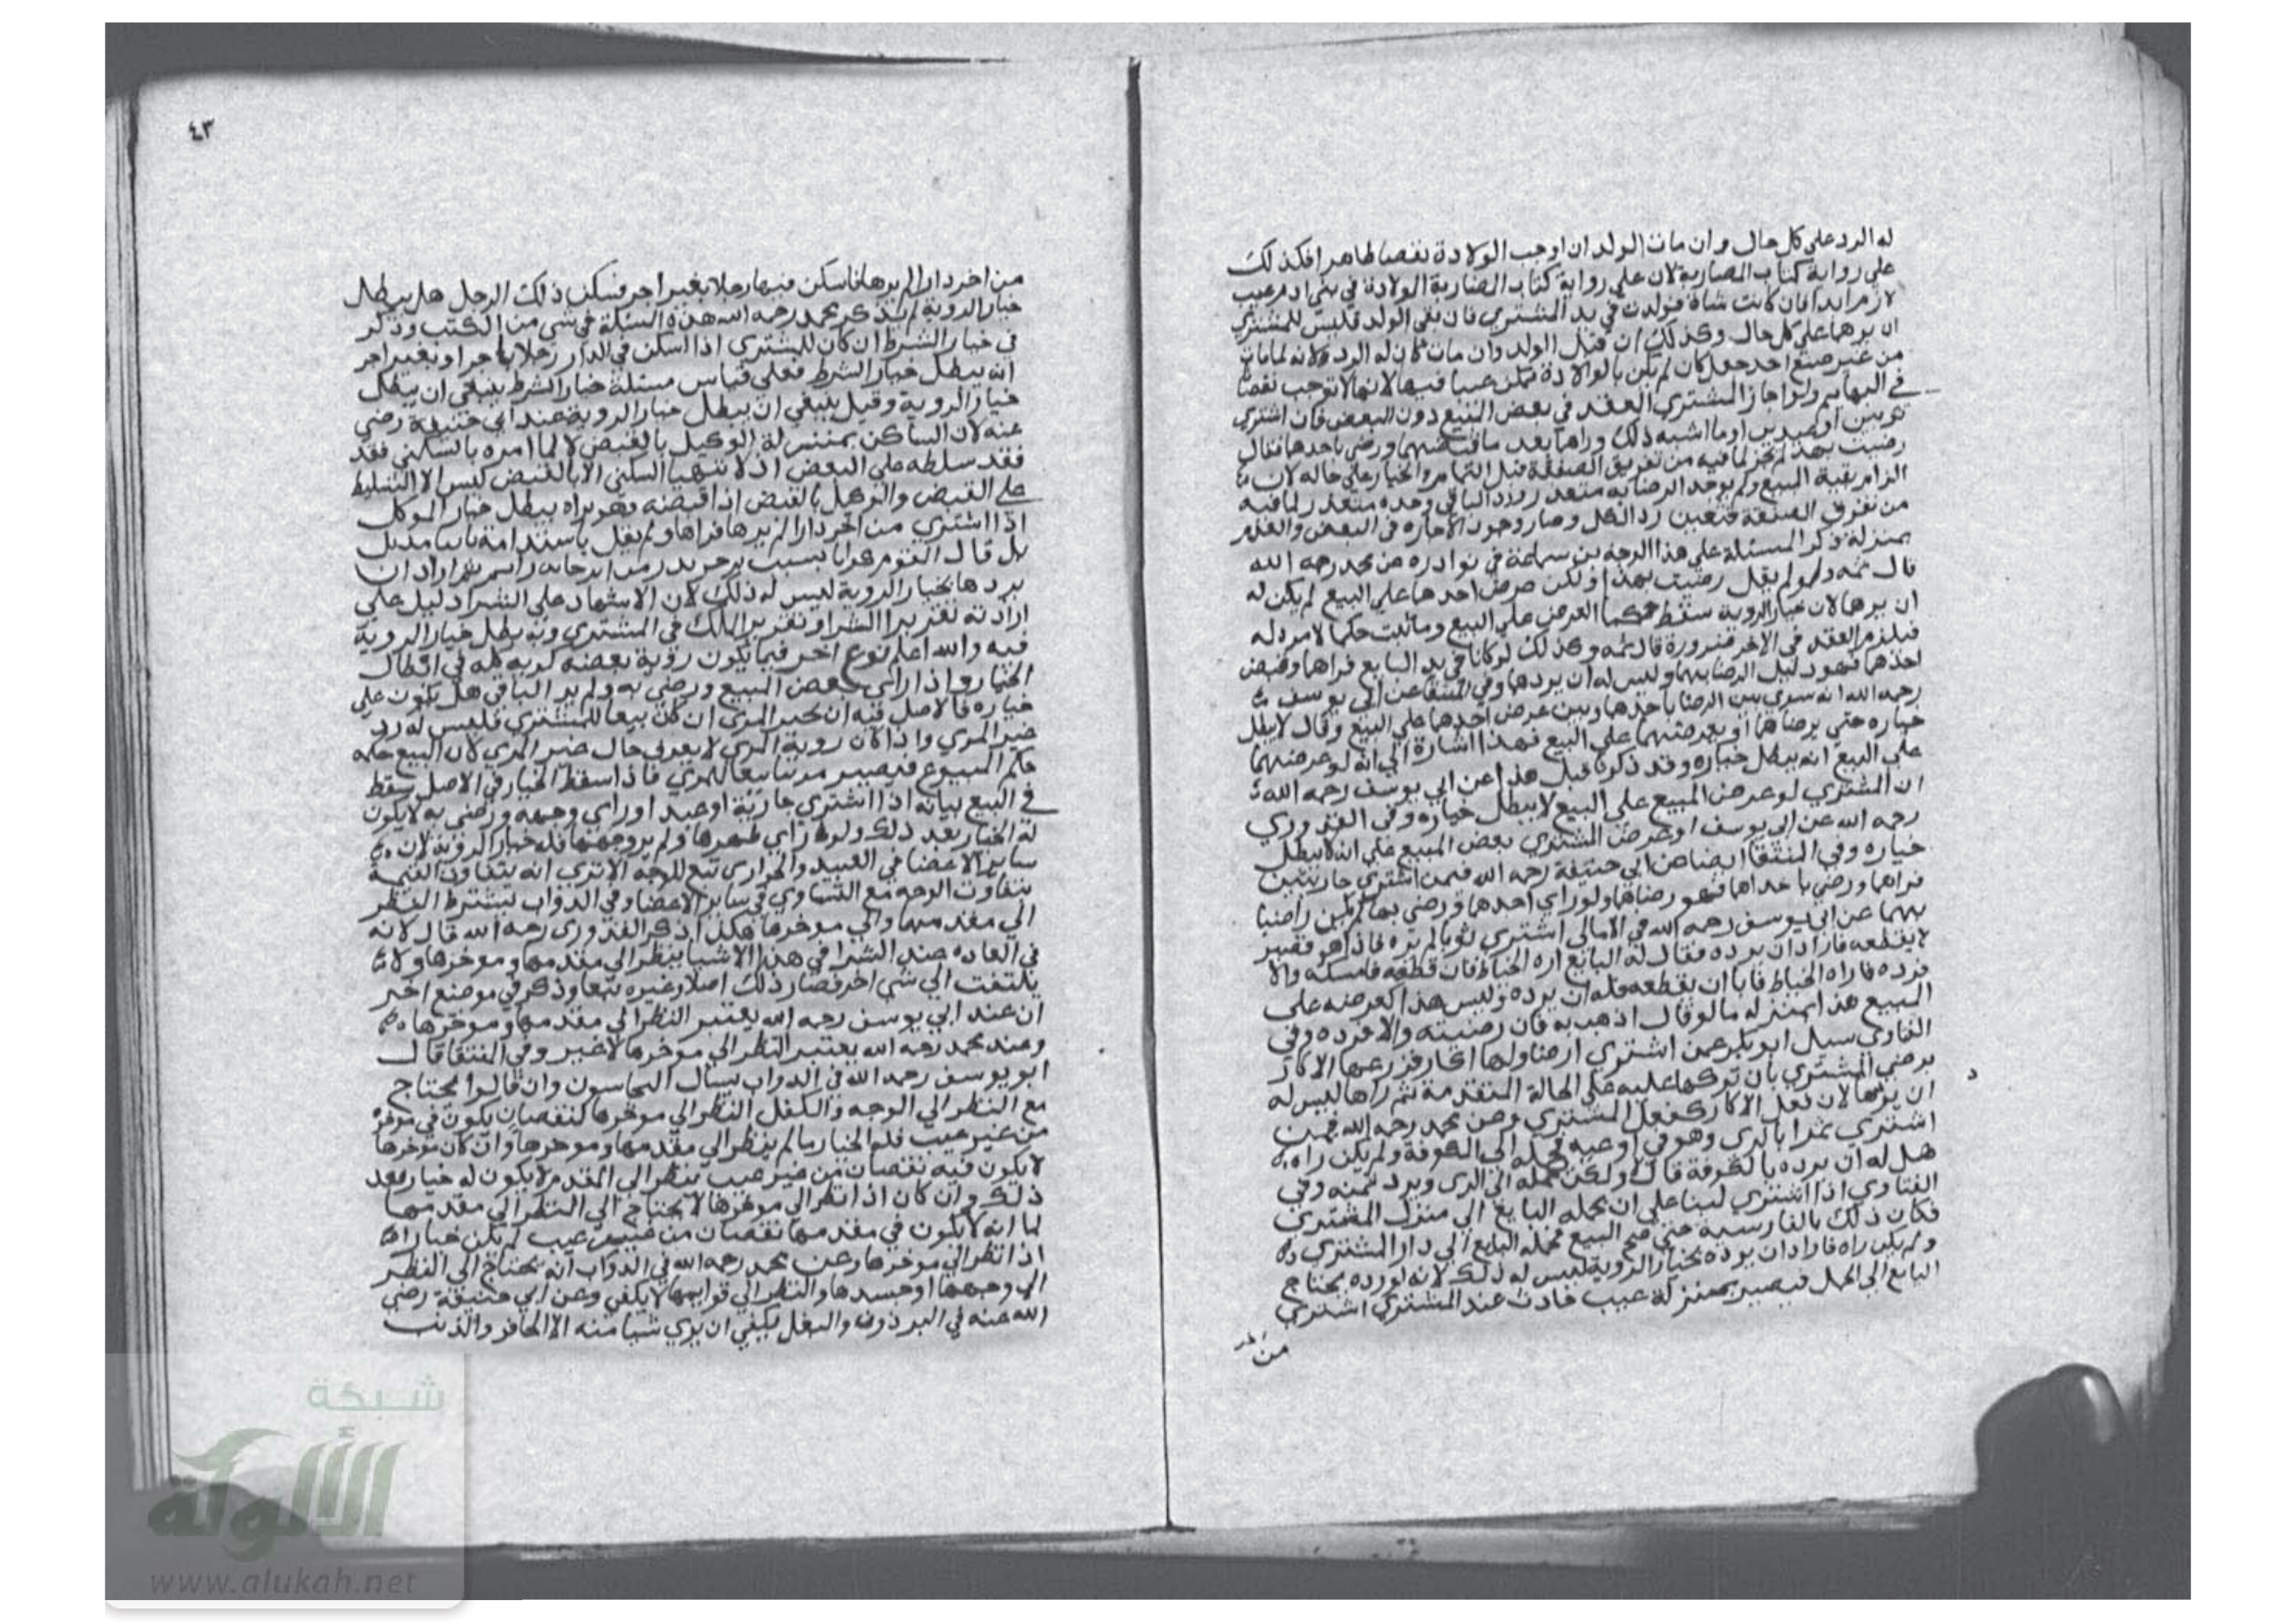 له الرد على كل حال وان مات الولد ان اوجب الولادة نقصا ظاهرا فكذلك
على رواية كتاب المضاربة لان على رواية كتاب المضاربة الولادة في بني ادم عيب
لازم ابدا فان كانت شاة فولدت في يد المشتري فان بقي الولد فليس للمشتري
ان يردها على كل حال وكذلك ان قتل الولد وان مات كان له الرد لانه لما مات
من غير صنع احد جعل كان لم يكن بالولادة عيبا فيها لانها لا توجب نقصا
في البهايم ولو اجاز المشتري العقد في بعض البيع دون البعض فان اشترى
ثوبين او عبدين او ما اشبه ذلك وراهما بعد ما قبضهما ورضي باحدها فقال
رضيت بهذا لم يجز لما فيه من تفريق الصفقة قبل التمام والخيار على حاله لان
الزام بقية المبيع ولم يوجد الرضا به متعذر ورد الباقي وحده متعذر لما فيه
من تفرق الصفقة فتعين رد الكل وصار وجود الاجازه في البعض والعدم
بمنزلة ذكر المسئلة على هذا الوجه بن سماعة في نوادره عن محمد رحمه الله
قال ثمه ولو لم يقل رضيت بهذا ولكن عرض احدها على البيع لم يكن له
ان يردها لان خيار الروية سقط حكما العرض على البيع وما ثبت حكما لا مرد له
فيلزم العقد في الاخر ضرورة قال ثمه وكذلك لو كانا في يد البايع فراهما وقبض
احدهما فهو دليل الرضا بهما وليس له ان يردها وفي المنتقا عن ابي يوسف
رحمه الله انه سوى بين الرضا باحدها وبين عرض احدها على البيع وقال لا يبطل
خياره حتى يرضاهما او يعرضهما على البيع فهذا اشارة الى انه لو عرضهما
على البيع انه يبطل خياره وقد ذكرنا قبل هذا عن ابي يوسف رحمه الله
ان المشتري لو عرض المبيع على البيع لا يبطل خياره وفي القدوري
رحمه الله عن ابي يوسف لو عرض المشتري بعض المبيع على انه لا يبطل
خياره وفي المنتقا ايضا عن ابي حنيفة رحمه الله فيمن اشترى جاريتين
فراهما ورضي باحداهما فهو رضاهما ولو راى احدهما ورضي بها لم يكن راضيا
بهما عن ابي يوسف رحمه الله في الامالي اشترى ثوبا لم يره فاذا هو قصير
لا يقطعه فاراد ان يرده فقال له البائع اره الخياط فان قطعه فامسكه والا
فرده فاراه الخياط فابا ان يقطعه فله ان يرده وليس هذا كعرضه على
البيع هذا بمنزله ما لو قال اذهب به فان رضيته والا فرده وفي
الفتاوي سيل ابو بكر عمن اشترى ارضا ولها اكار فزرعها الاكار
برضى المشتري بان تركها عليه على الحالة المتقدمة ثم راها ليس له
ان يردها لان فعل الاكار كفعل المشتري وعن محمد رحمه الله فيمن
اشترى تمرا بالري وهو في اوعيه فحمله الى الكوفة ولم يكن راه
هل له ان يرده بالكوفة قال لا ولكن يحمله الى الري ويرد ثمنه وفي
الفتاوي اذا اشترى لبنا على ان يحمله البايع الى منزل المشتري
فكان ذلك بالفارسية حتى صح البيع فحمله البايع الى دار المشتري
ولم يكن راه فاراد ان يرده بخيار الروية ليس له ذلك لانه لو رده يحتاج
البايع الى الحمل فيصير بمنزلة عيب حادث عند المشتري اشترى
من
٤٣
من اخر دارا لم يرها فاسكن فيها رجلا بغير اجر فسكن ذلك الرجل هل يبطل
خيار الروية لم يذكر محمد رحمه الله هذه المسئلة في شي من الكتب وذكر
في خيار الشرط ان كان للمشتري اذا اسكن في الدار رجلا باجر او بغير اجر
انه يبطل خيار الشرط فعلى قياس مسئلة خيار الشرط ينبغي ان يبطل
خيار الروية وقيل ينبغي ان يبطل خيار الروية عند ابي حنيفة رضي
عنه لان الساكن بمنزلة الوكيل بالقبض لانه لما امره بالسكنى فقد
فقد سلطه على البعض اذ لا تتهيا السكنى الا بالقبض ليس الا التسليط
على القبض والتوكيل بالقبض اذا قبضه وهو يراه يبطل خيار الموكل
اذا اشترى من اخر دارا لم يرها فراها ولم يقل
بل قال القوم ثم اراد ان
يردها بخيار الروية ليس له ذلك لان الاشهاد على الشرا دليل على
ارادته تقرير الشرا وتقرير الملك في المشتري وبه يبطل خيار الروية
فيه والله اعلم نوع اخر فيما يكون رؤية بعضه كرويه كله في ابطال
الخيار واذا راى بعض المبيع ورضي به ولم ير الباقي هل يكون على
خياره فالاصل فيه ان غير المري ان كان تبعا للمشتري فليس له رد
غير المري واذا كان روية المري لا يعرف حال غير المري لان البيع حكمه
حكم المتبوع فيصير مرئيا تبعا للمري فاذا سقط الخيار في الاصل سقط
في البيع بيانه اذا اشترى جارية او عبدا وراى وجهه ورضي به لا يكون
له الخيار بعد ذلك ولو راى ظهرها ولم ير وجهها فله خيار الرؤية لان
ساير الاعضا في العبيد والجواري تبع للوجه الا ترى انه يتفاوت القيمة
بتفاوت الوجه مع التساوي في ساير الاعضا وفي الدواب يشترط النظر
الى مقدمها والى موخرها هكذا ذكر القدوري رحمه الله قال لانه
في العاده عند الشرا في هذه الاشيا ينظر الى مقدمها وموخرها ولا
يلتفت الى شي اخر فصار ذلك اصلا وغيره تبعا وذكر في موضع اخر
ان عند ابي يوسف رحمه الله يعتبر النظر الى مقدمها وموخرها
وعند محمد رحمه الله يعتبر النظر الى موخرها لا غير وفي المنتقا قال
ابو يوسف رحمه الله في الدواب يسال النخاسون وان قالوا يحتاج
مع النظر الى الوجه والكفل النظر الى موخرها لنقصان يكون في موخره
من غير عيب فله الخيار ما لم ينظر الى مقدمها وموخرها وان كان موخرها
لا يكون فيه نقصان من غير عيب ينظر الى المقدم ولا يكون له خيار بعد
ذلك وان كان اذا نظر الى موخرها لا يحتاج الى النظر الى مقدمها
لما انه لا يكون في مقدمها نقصان من غير عيب لم يكن خيار
اذا نظر الى موخرها وعن محمد رحمه الله في الدواب انه يحتاج الى النظر
الى وجهها او جسدها والنظر الى قوايمها لا يكفي وعن ابي حنيفة رضي
الله عنه في البرذون والبغل يكفي ان يرى شيا منه الا الحافر والذنب
شبكة
الألوكة
www.alukah.net